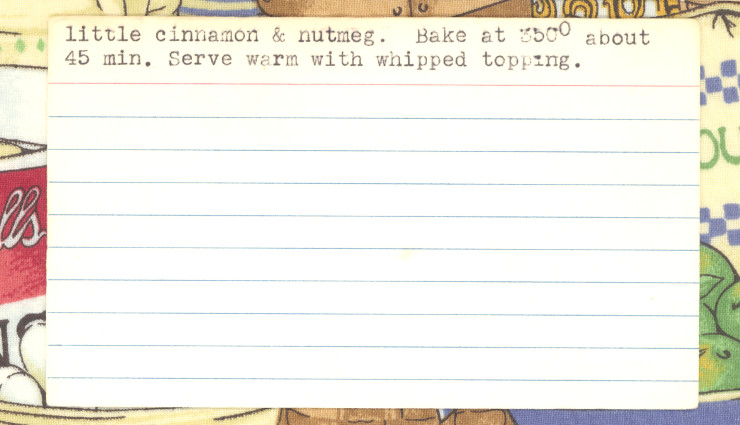 little cinnamon & nutmeg. Bake at 350⁰ about
45 min. Serve warm with whipped topping.
lls
OU